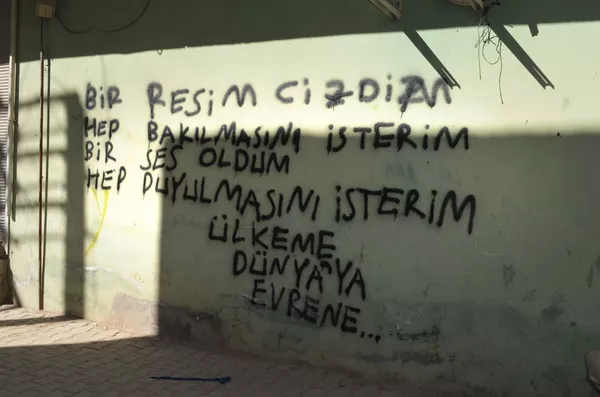 BİR RESİM CİZDİM
HEP BAKILMASINI İSTERİM
BİR SES OLDUM
HEP DUYULMASINI İSTERİM
ÜLKEME
DÜNYA'YA
EVRENE...